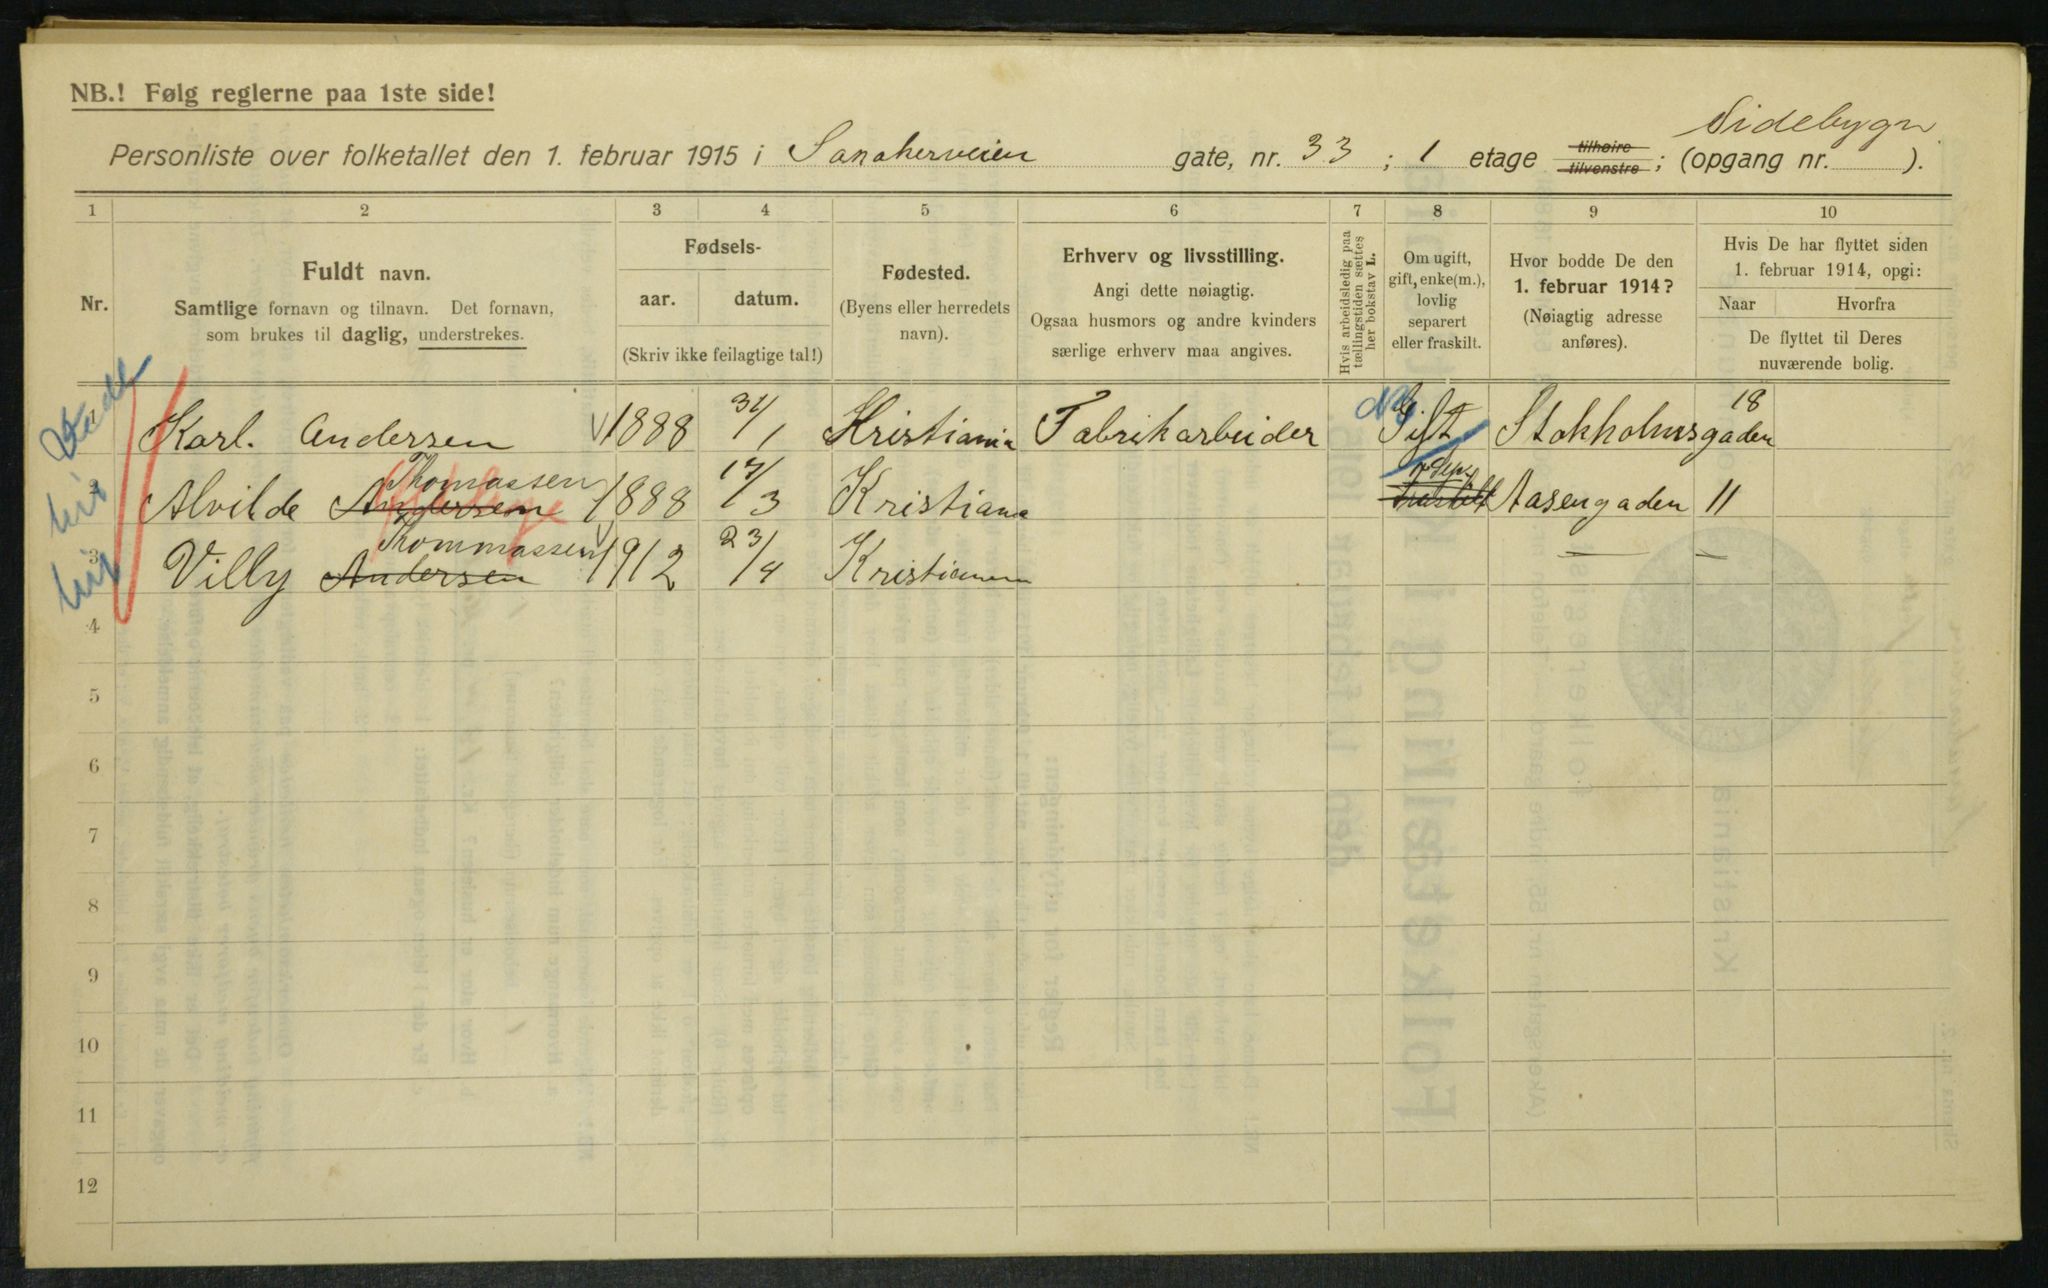 NB.! Følg reglerne paa 1ste side!
Sidebygn
Personliste over folketallet den 1. februar 1915 i Sanakerveien gate, nr. 33 ; 1 etage tilhøire tilvenstre ; (opgang nr. ).
1 2 3 4 5 6 7 8 9 10
Nr.
Fuldt navn.
Samtlige fornavn og tilnavn. Det fornavn,
som brukes til daglig, understrekes.
Fødsels-
aar. datum.
(Skriv ikke feilagtige tal!)
Fødested.
(Byens eller herredets
navn).
Erhverv og livsstilling.
Angi dette nøiagtig.
Ogsaa husmors og andre kvinders
særlige erhverv maa angives.
Hvis arbeidsledig paa
tællingstiden sættes
her bokstav L.
Om ugift,
gift, enke(m.),
lovlig
separert
eller fraskilt.
Hvor bodde De den
1. februar 1914?
(Nøiagtig adresse
anføres).
Hvis De har flyttet siden
1. februar 1914, opgi:
Naar Hvorfra
De flyttet til Deres
nuværende bolig.
1 Karl. Andersen 1888 31/1 Kristiania Fabrikarbeider Gift Stokholmsgaden 18
Thomassen
2 Alvilde Andersen 1888 17/3 Kristiania fraskilt Aasengaden 11
Thommassen
3 Villy Andersen 1912 23/4 Kristiania — –
4
5
6
7
8
9
10
11
12